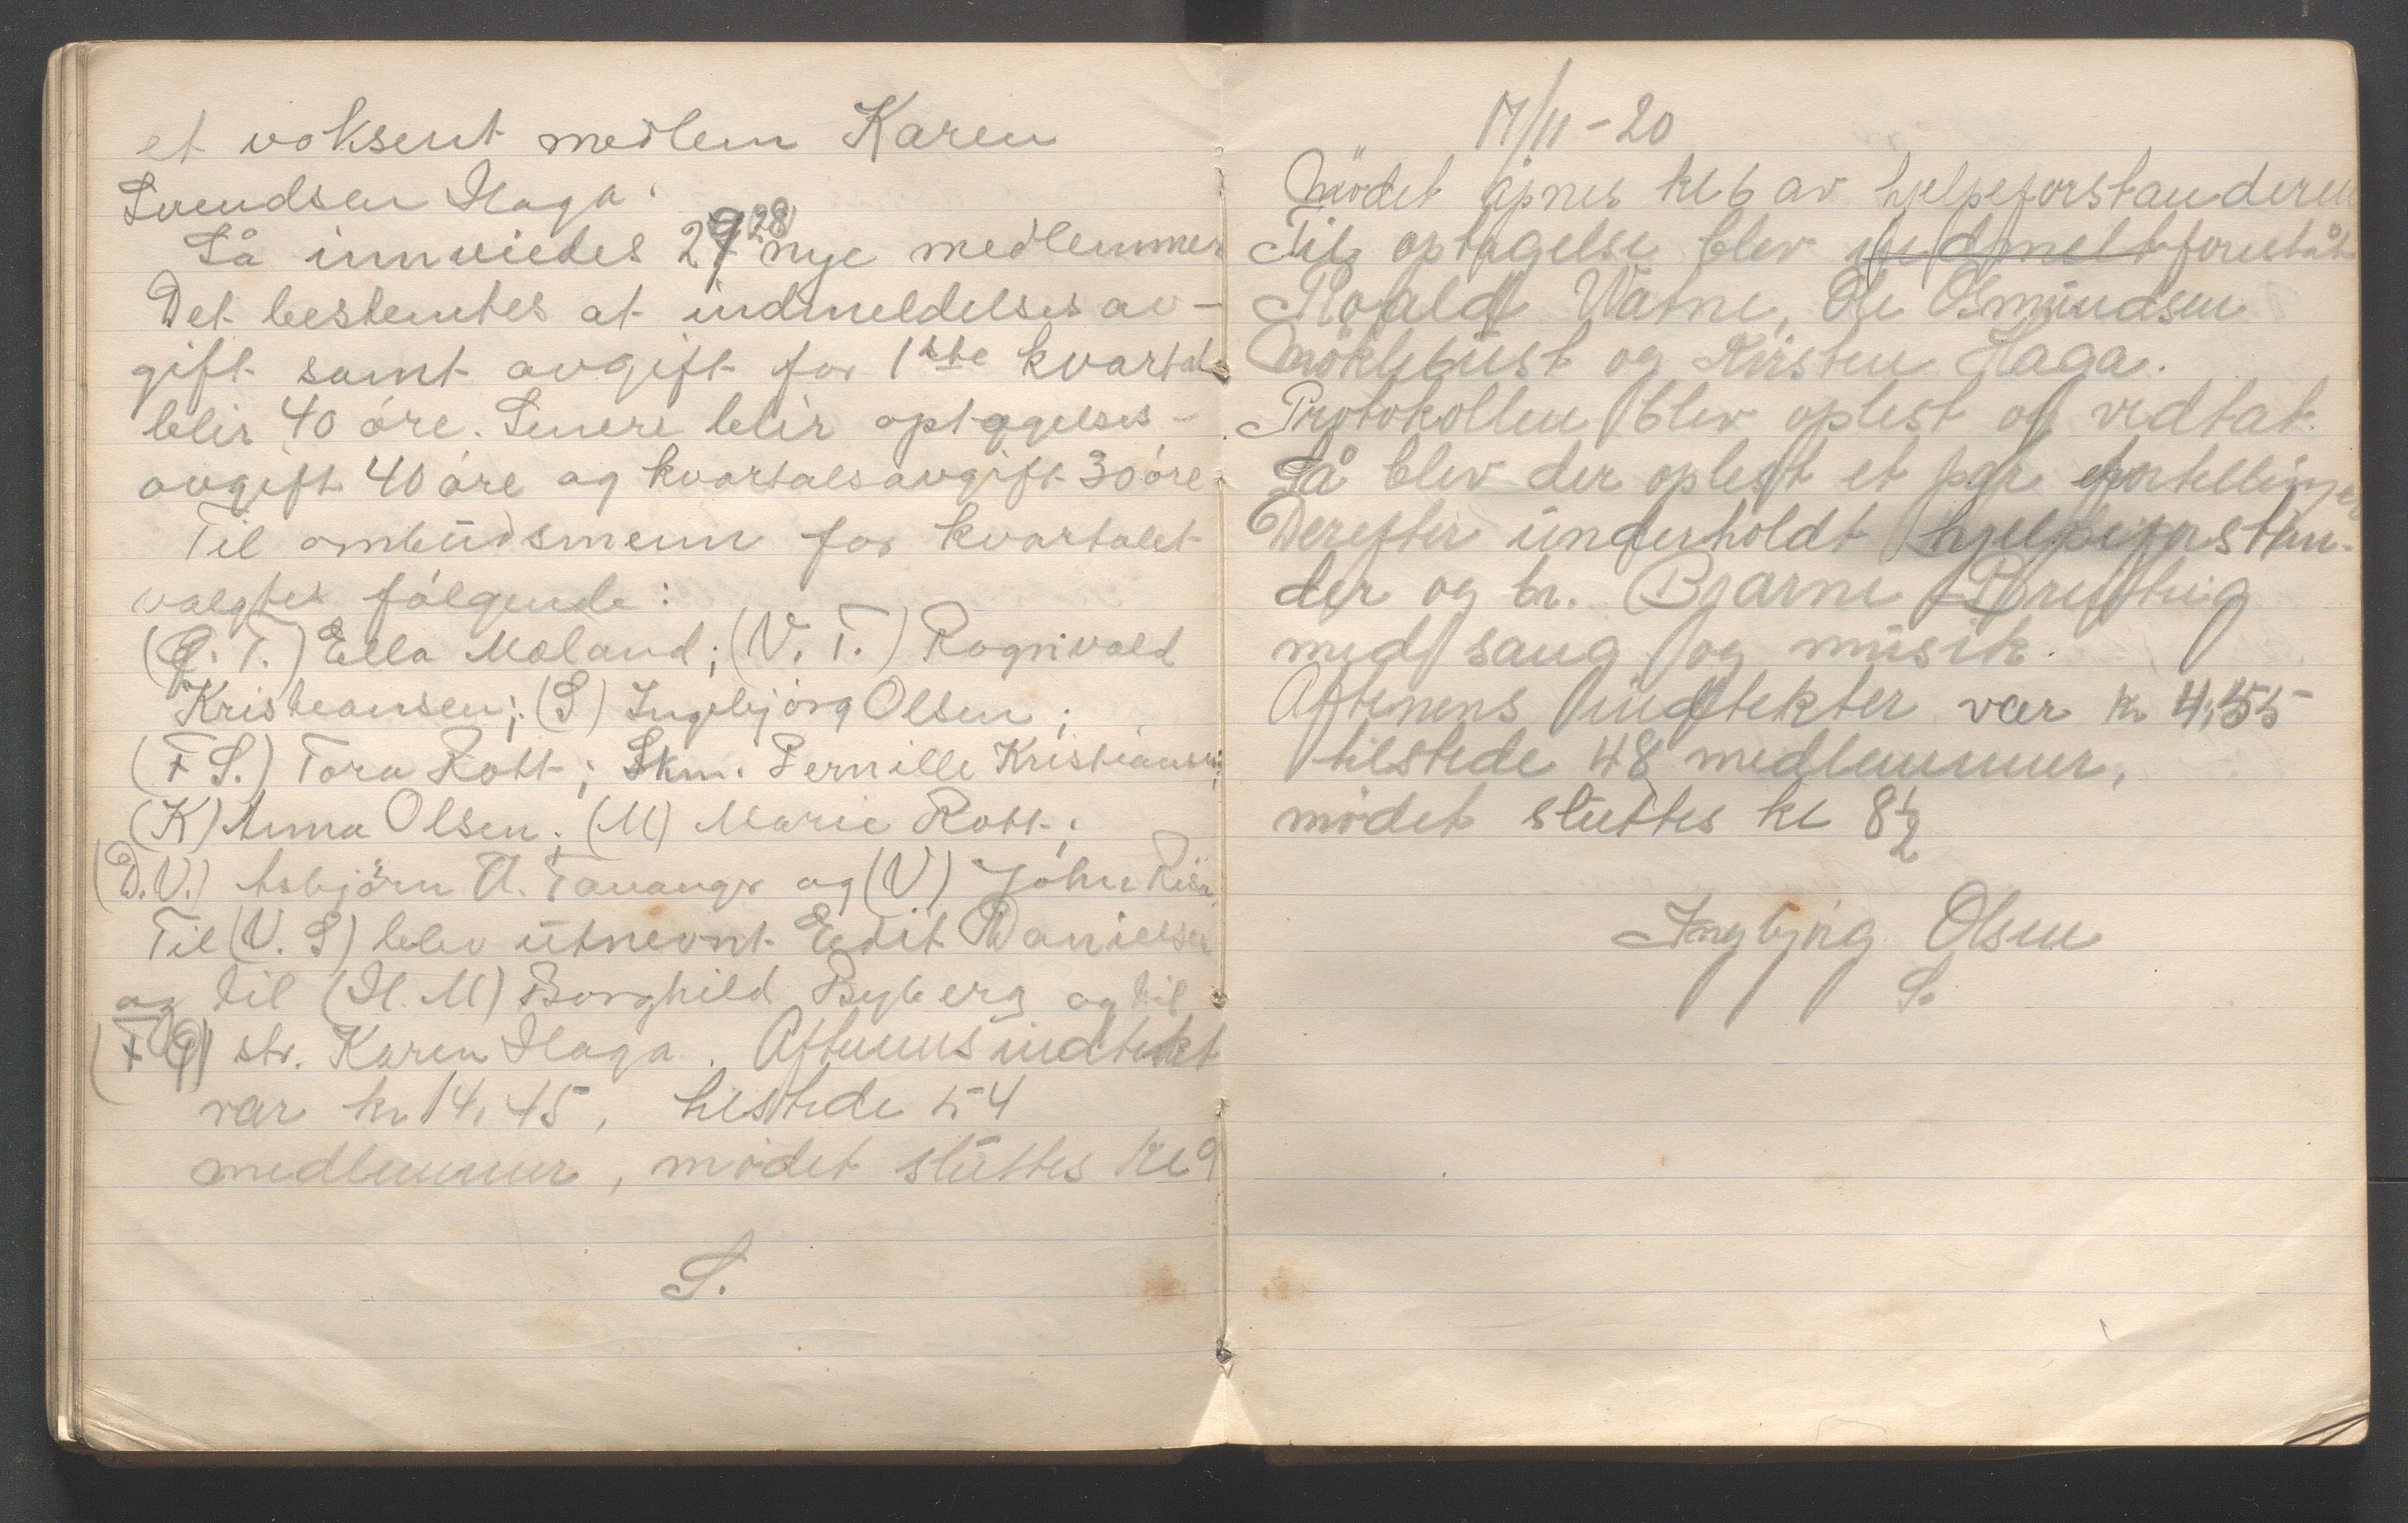 et voksent medlem Karen
Svendsen Haga.
Så innviedes 29 (28) nye medlemmer
Det bestemtes at indmeldelsesav-
gift samt avgift for 1ste kvartal
blir 40 øre. Senere blir optagelses-
avgift 40 øre og kvartalsavgift 30 øre
Til ombudsmenn for kvartalet
valgtes følgende:
T.) Ella Mæland; (V. T.) Ragnvald
Kristiansen; (S) Ingebjörg Olsen;
(F S.) Tora Rott; Skm. Pernille Kristiansen;
(K) Anna Olsen; (M) Marie Rott;
(D.V.) Asbjörn A. Tananger og (V) John Risa,
Til (V. S) blev utnevnt Edit Danielsen
og til (H. M) Borghild Byberg og til
str. Karen Haga. Aftenens indtekt
var kr 14,45, tilstede 54
medlemmer, mødet sluttes kl 9
S.
17/11-20
Mödet åpnes kl 6 av hjelpeforstanderen
Til optagelse blev indmelt forestått
Roald Watne, Ole Osmundsen
Møklebust og Kirsten Haga.
Protokollen blev oplest og vedtat.
Så blev der oplest et par fortellinger
Derefter underholdt hjelpeforstan-
der og br. Bjarne
med sang og musik.
Aftenens indtekter var kr 4,55
tilstede 48 medlemmer,
mødet sluttes kl 8½
Ingbjørg Olsen
S.